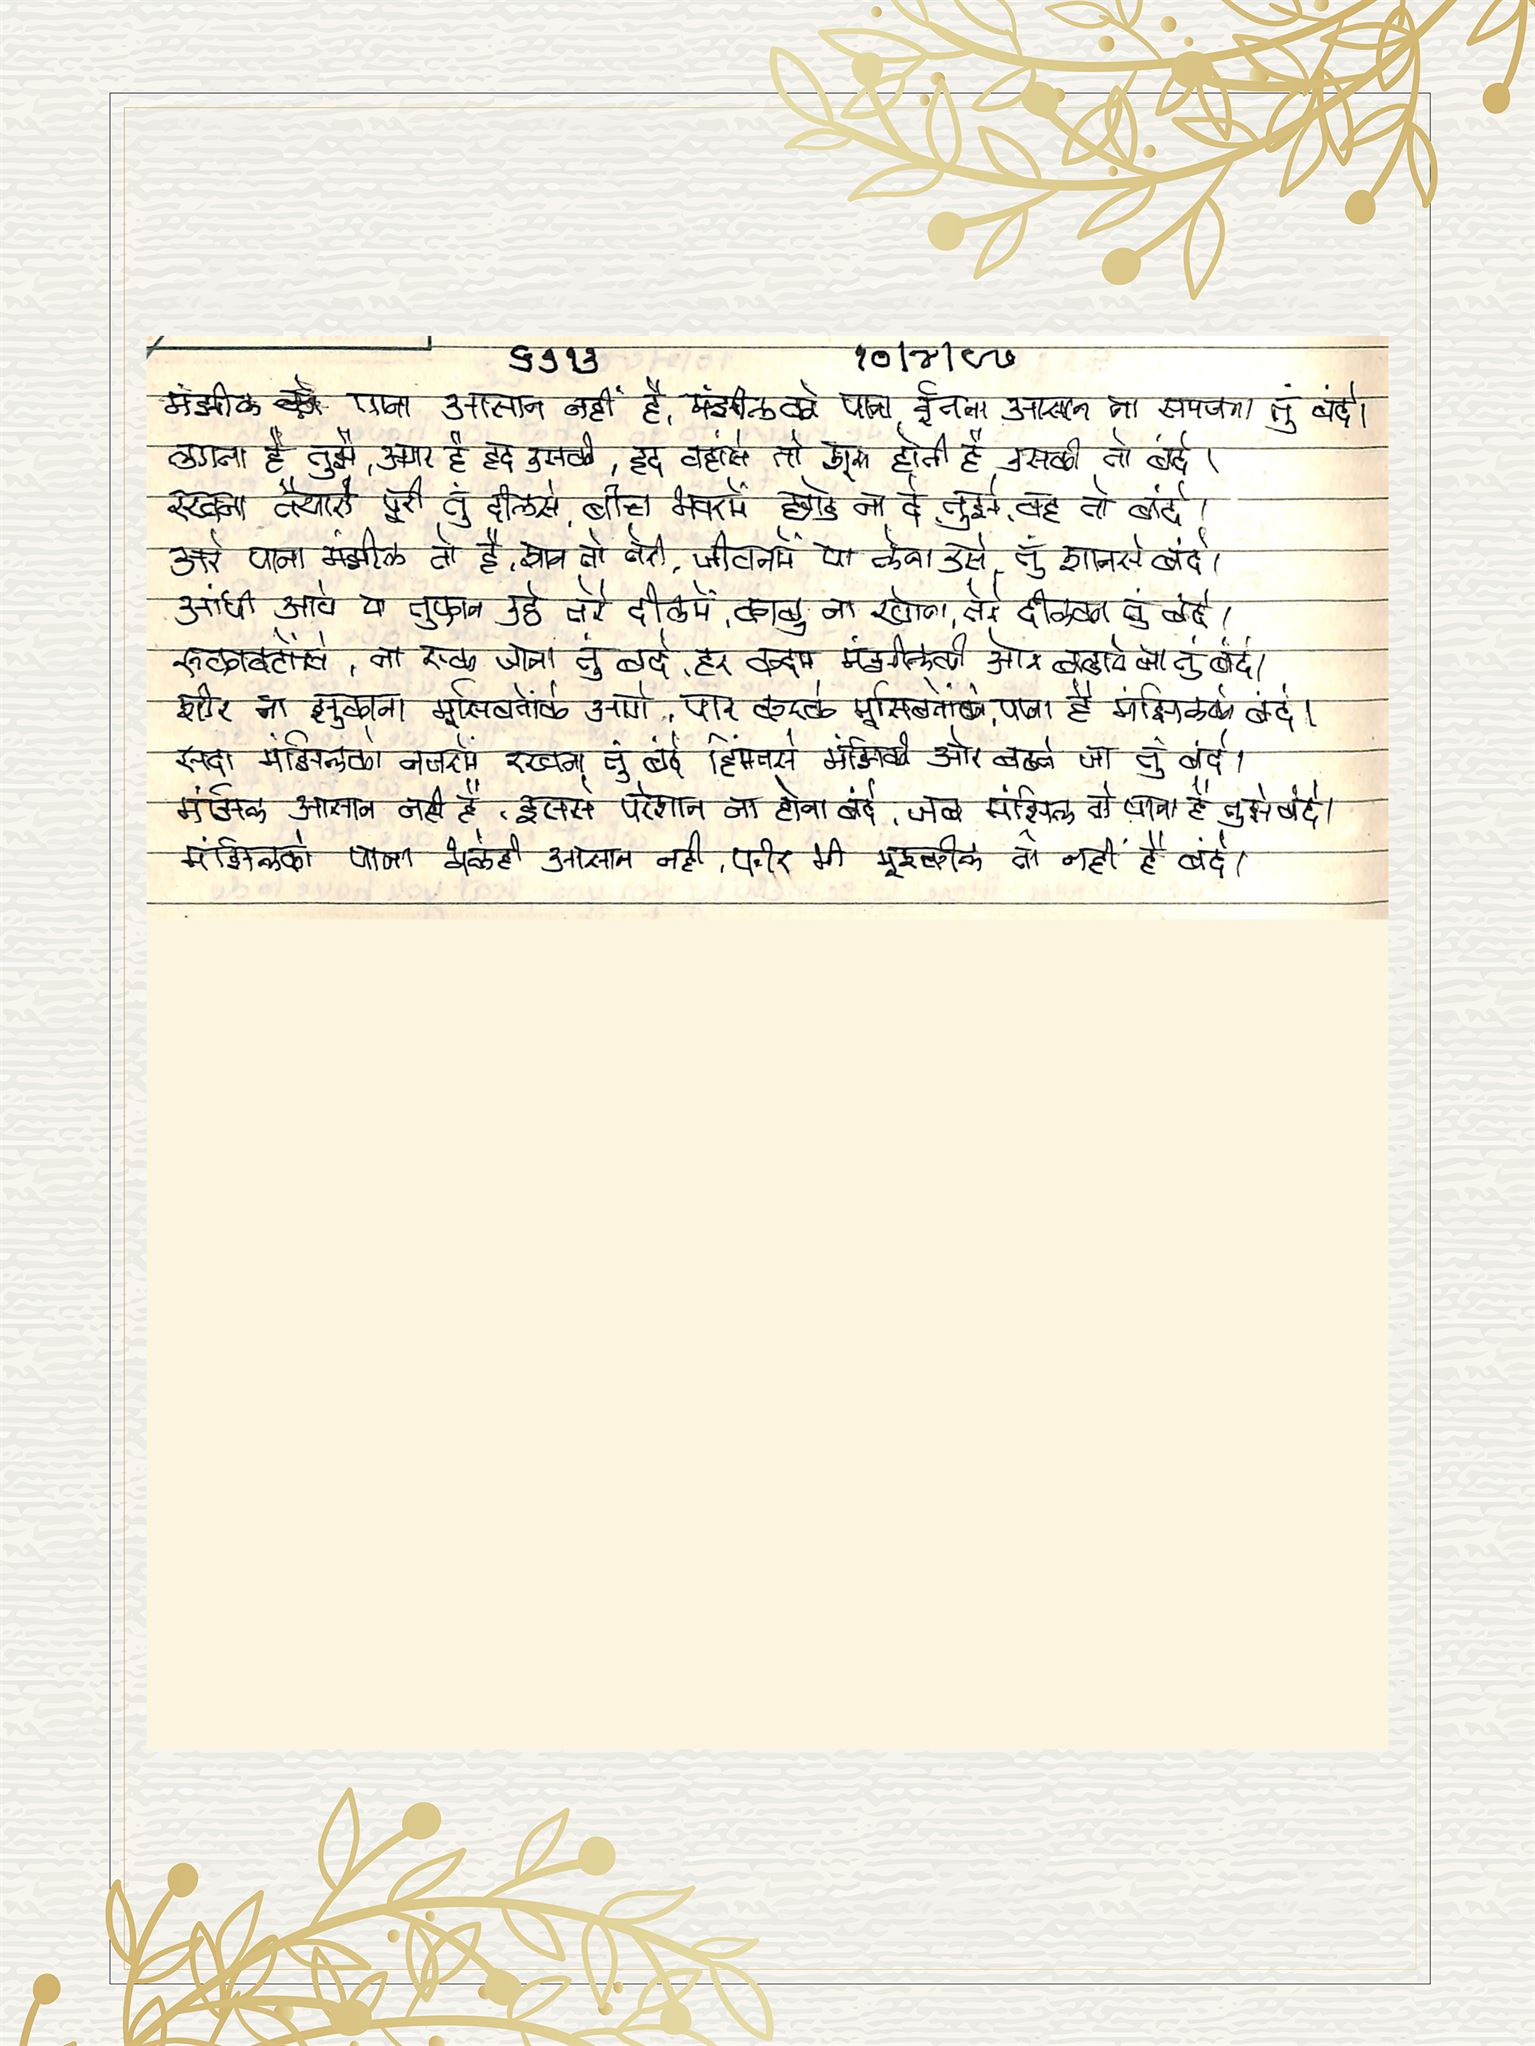 મંઝીલ को पाना आसान नहीं है, मंझीलको पाना ईतना आसान ना समजना तुं बंदे।
लगता है तुझे, अगर है हद उसकी, हद वहांसे तो शुरू होती है उसकी तो बंदे।
रखना तैयारी पूरी तुं दीलसे, बीच भवरमें छोड ना दे तुझे, वह तो बंदे।
अरे पाना मंझील तो है, शान तो तेरी, जीवनमें पा लेना उसे, तुं शानसे बंदे।
आंधी आवे या तुफान उठे तेरे दीलमें, काबु ना खोना, तेरे दीलका तुं बंदे।
रूकावटोंसे, ना रूक जाना तुं बंदे, हर कदम मंझीलकी ओर बढाये जा तुं बंदे।
शीर ना झुकाना मूसिबतोंके आगे, पार करके मूसिबतोंको, पाना है मंझिलको बंदे।
सदा मंझिलको नजरमें रखना तुं बंदे हिंमतसे मंझिकी और बढते जा तुं बंदे।
मंझिल आसान नही है, इससे परेशान ना होना बंदे, जब मंझिल तो पाना है तुझे बंदे।
मंझिलको पाना भलेही आसान नही, फीर भी मूश्कील तो नहीं है बंदे।